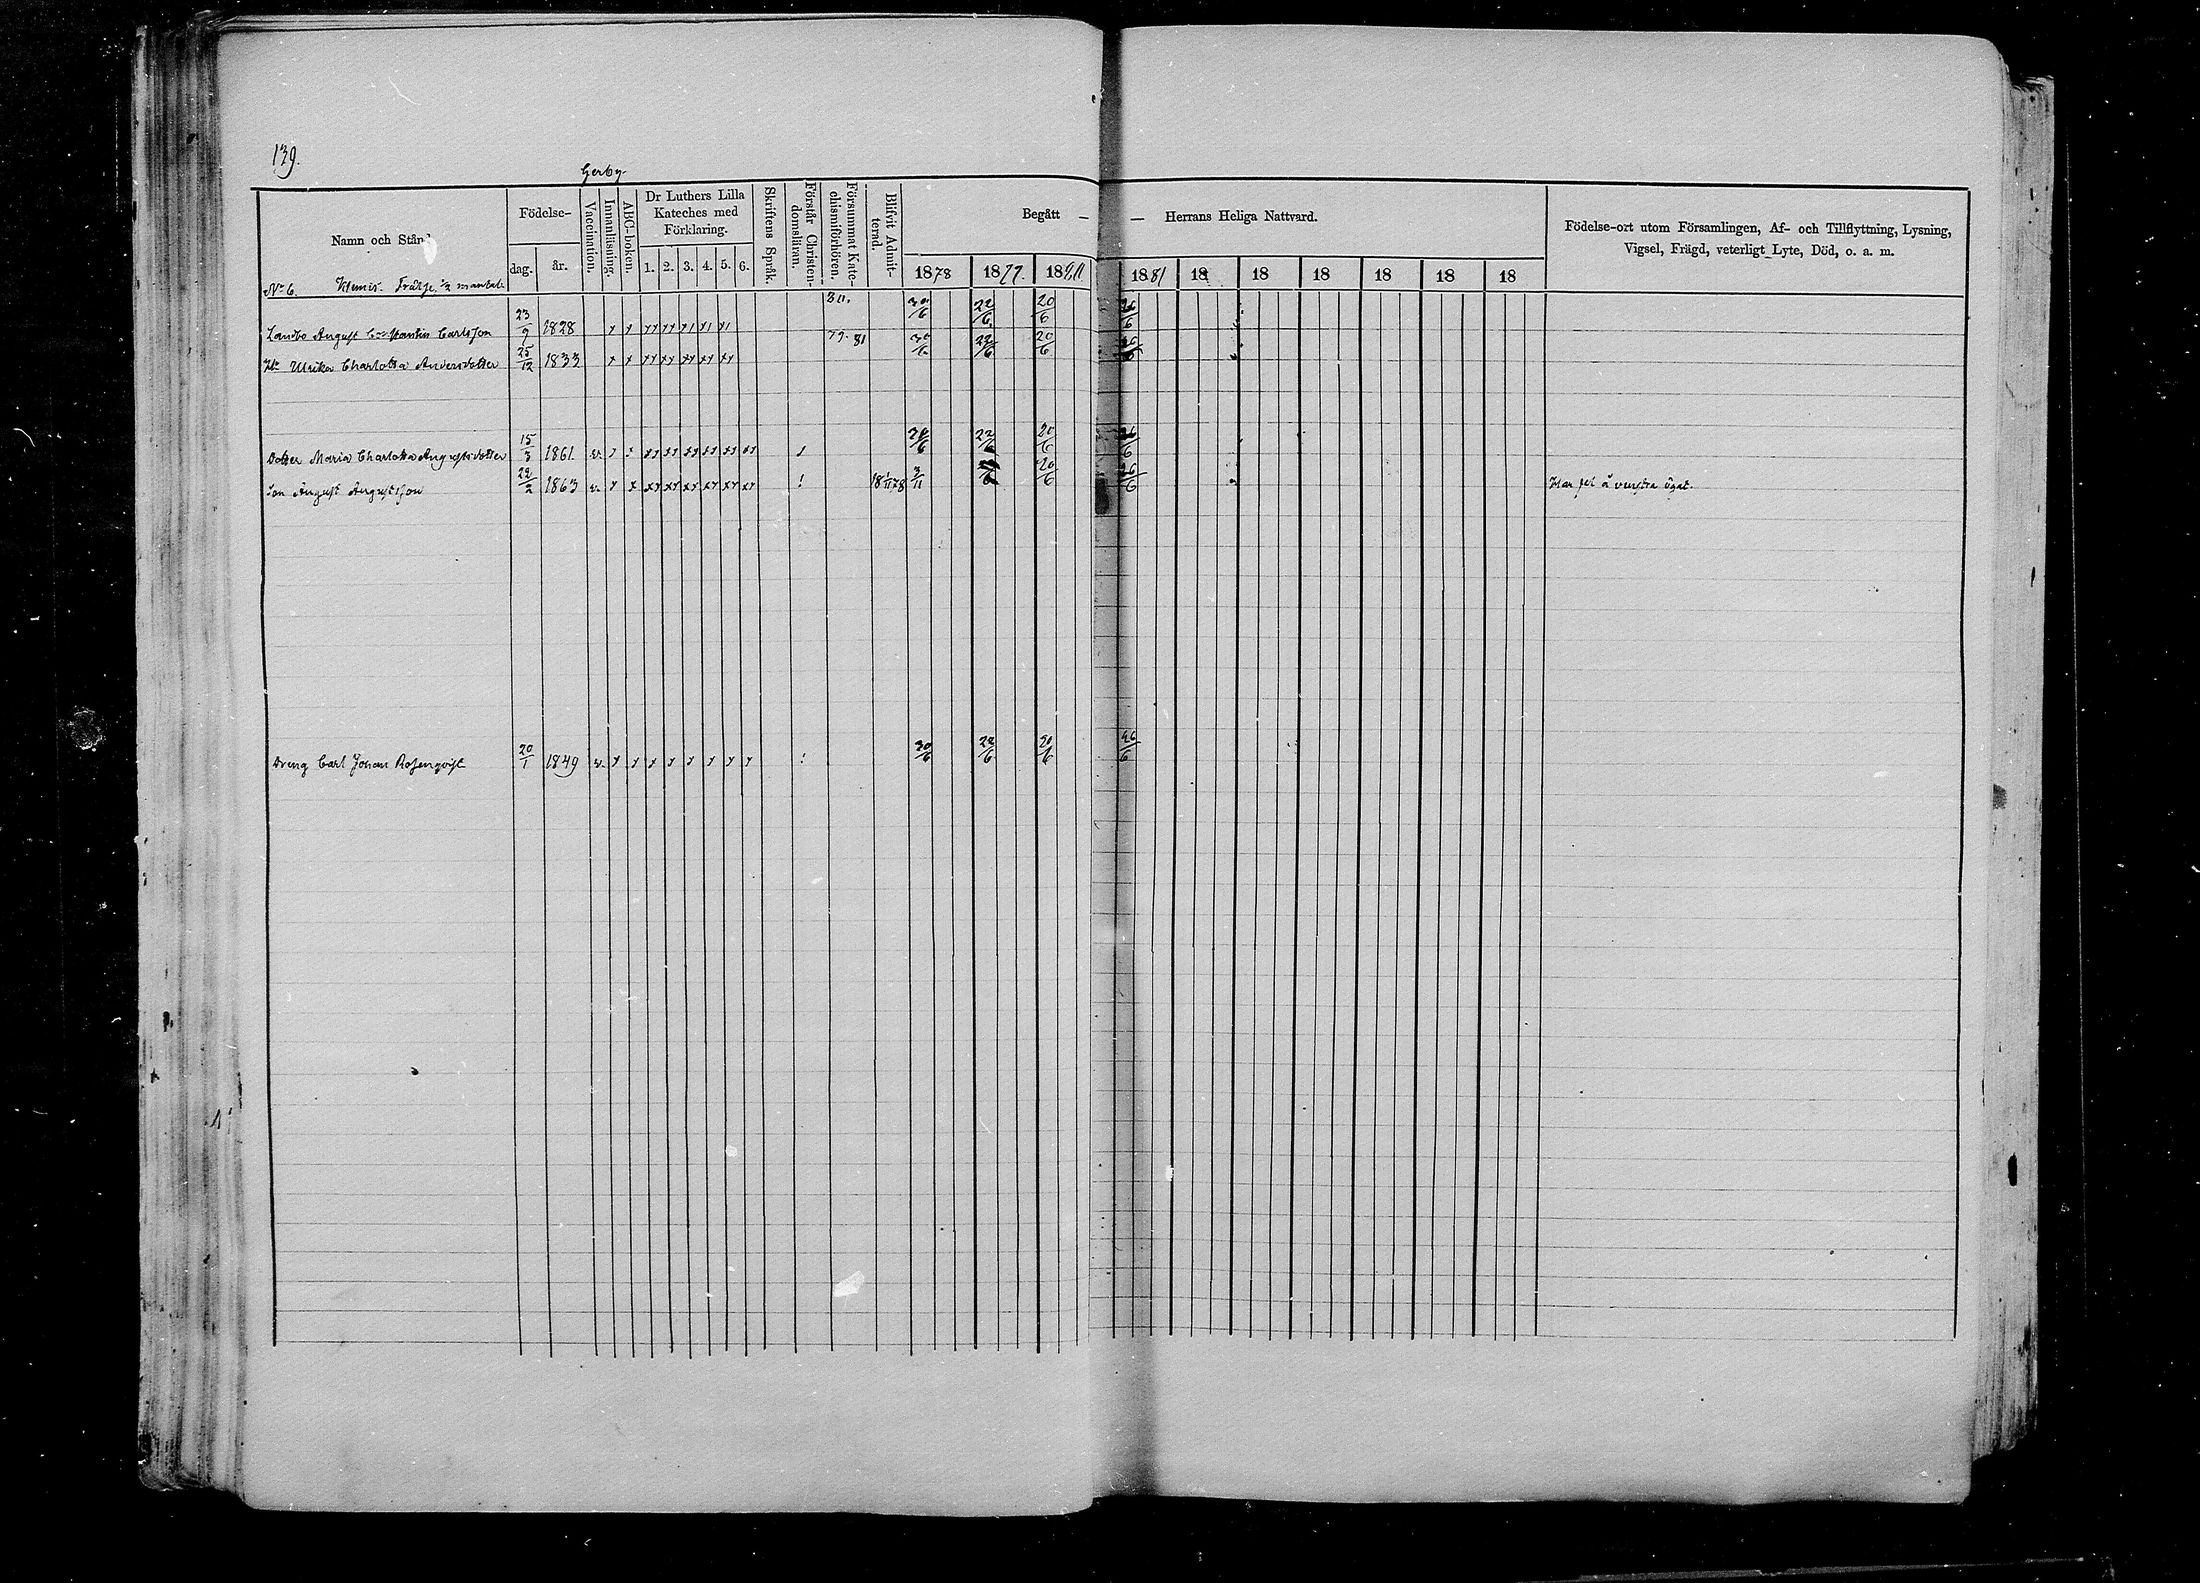 139.
Gerby
Namn och Stånd
Födelse-
dag.
år.
Vaccination.
Innanläsning.
ABC-boken.
Dr Luthers Lilla
Kateches med
Förklaring.
1. 2. 3. 4. 5. 6.
Skriftens Språk.
Förstår Christen-
domsläran.
Försummat Kate-
chismiförhören.
Blifvit Admit-
terad.
Begått — — Herrans Heliga Nattvard.
1878 1879. 1880. 1881 18 18 18 18 18 18
Födelse-ort utom Församlingen, Af- och Tillflyttning, Lysning,
Vigsel, Frägd, veterligt Lyte, Död, o. a. m.
No 6. Klemis. Frälse mantal
Landbo August Carlsson 23/9 1828 x x 80. 30/6 22/6 20/6 26/6
H:u Ulrika Charlotta Andersdotter 25/12 1833 x x 79. 81 30/6 22/6 20/6 26/6
Dotter Maria Charlotta Augustsdotter 15/3 1861. v. 30/6 22/6 20/6 26/6
Son August Augustsson 22/2 1863 v. 18 1/11 78 3/11 20/6 26/6 Har fel å venstra ögat.
Dreng Carl Johan Rosenqvist 20/1 1849 v. x x x x x x x x 30/6 22/6 20/6 26/6